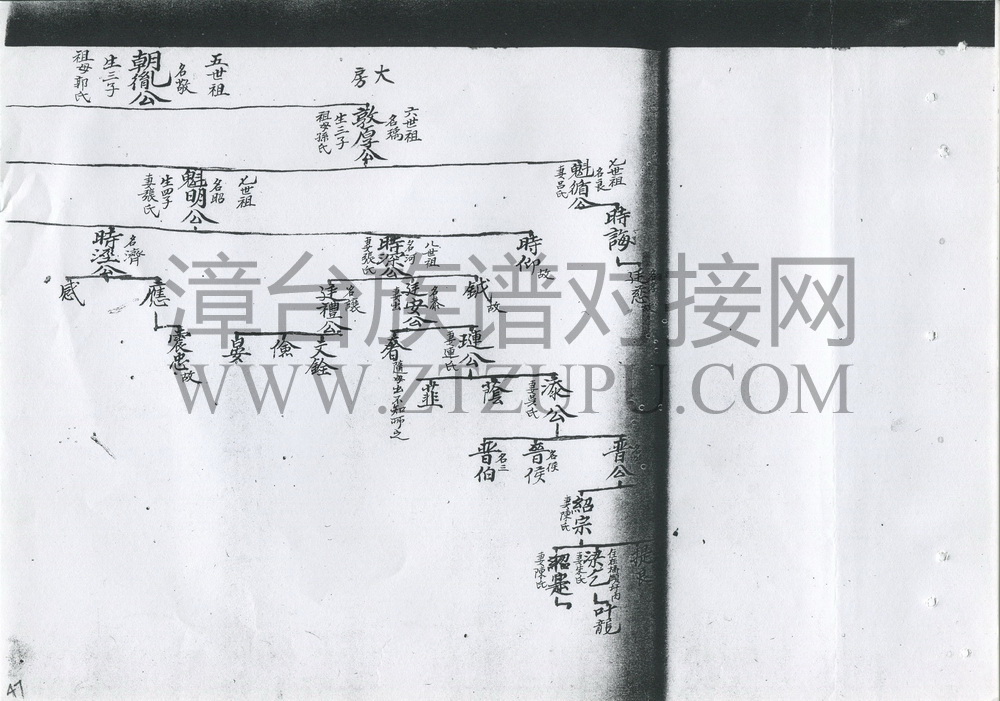 大房
五世祖
名敬
朝胤公
生三子
祖母郭氏
六世祖
敦厚公
生三子
祖母孫氏
七世祖
名良
魁循公
妻呂氏
七世祖
名昭
魁明公
生四子
妻張氏
時誨
時仰
故
八世祖
名河
時深公
妻張氏
名濟
時涇公
鉞
故
名泰
廷安公
名讓
廷禮公
應
感
璉公
妻連氏
春
隨母出不知所之
文銓
儉
晏
震忠
故
添公
妻吳氏
蔭
韭
普公
名侯
普侯
名三
普伯
紹宗
妻陳氏
妻朱氏
紹
妻陳氏
叶龍
漳台族谱对接网
WWW.ZTZUPU.COM
47